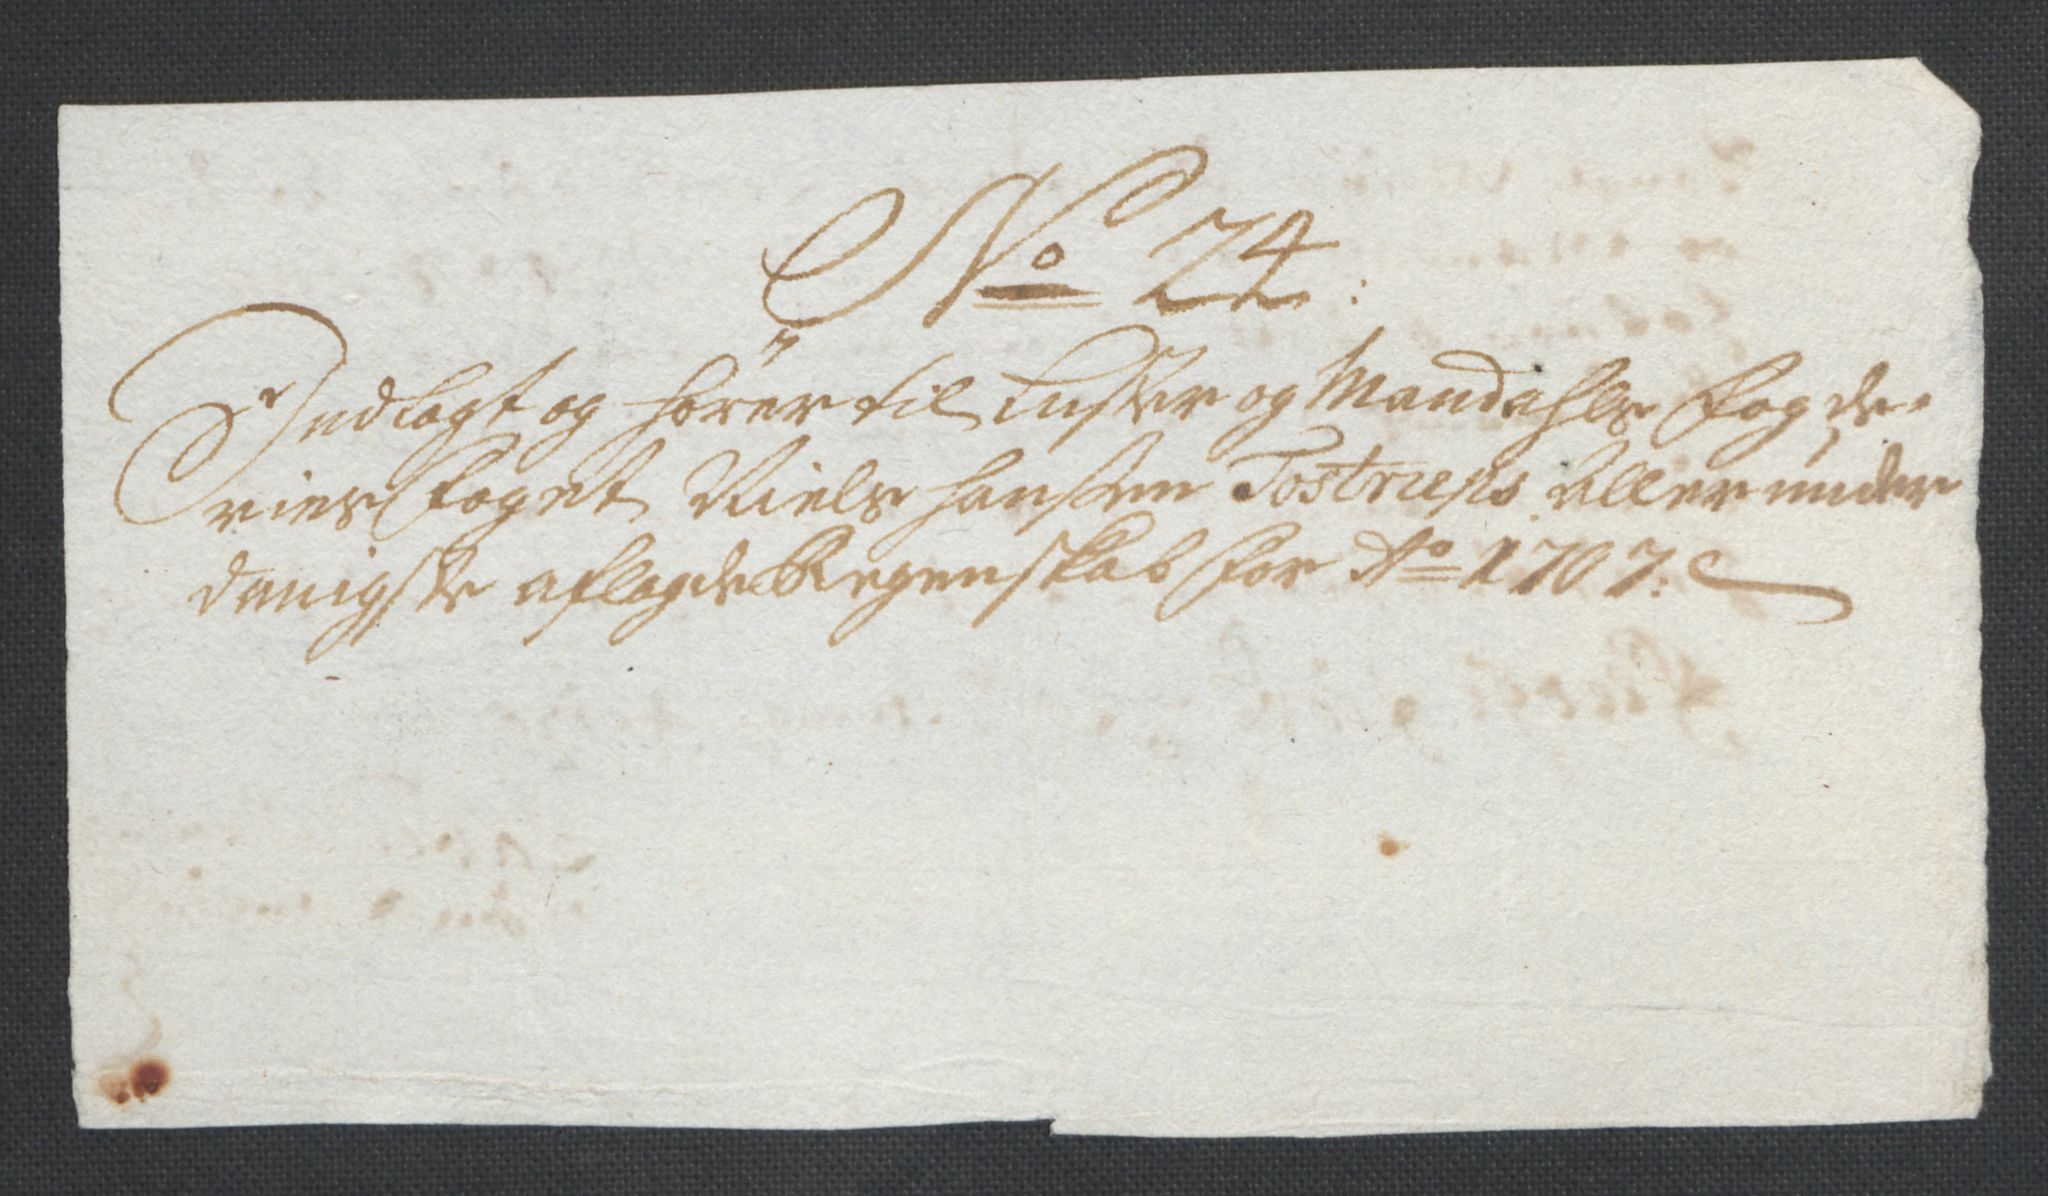 No 24:
Indlagt og hører til Lister og Mandahls fogde-
ries foget Niels Hansen Tostrups Allerunder
danigste aflagde Regenskab for Ao 1707: